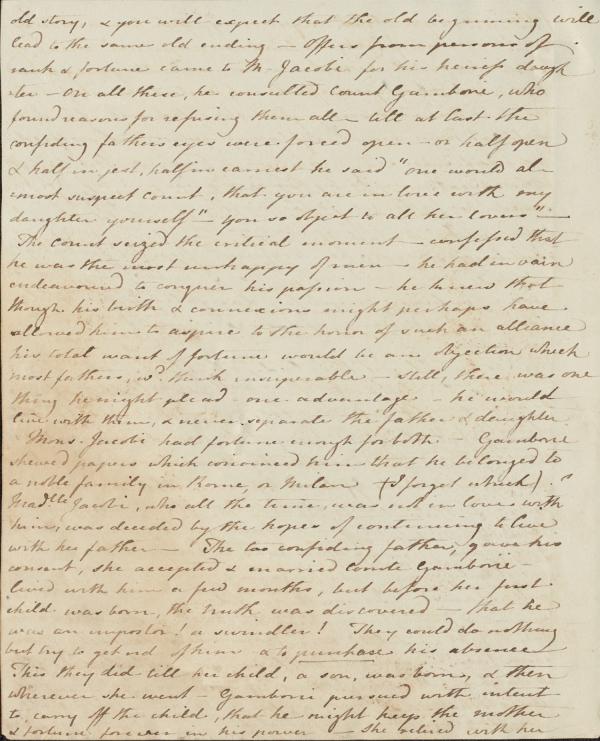 old story, & you will expect that the old beginning will
lead to the same old ending – Offers from persons of
rank & fortune came to M. Jacobi for his heiress daugh
ter – On all these, he consulted Count Gamborie, who
found reasons for refusing them all – till at last the
confiding fathers eyes were forced open – or half open
& half in jest, half in earnest he said "one would al-
most suspect Count, that you are in love with my
daughter yourself" – you so object to all her lovers" –
The Count seized the critical moment – confessed that
he was the most unhappy of men – he had in vain
endeavoured to conquer his passion – he knew that
though his birth & connexions might perhaps have
allowed him to aspire to the honor of such an alliance
his total want of fortune would be an objection which
most fathers, wd. think insuperable – still, there was one
thing he might plead one advantage – he would
live with them, & never separate the father & daughter.
Mons. Jacobi had fortune enough for both – Gamborie
shewed papers which convinced him that he belonged to
a noble family in Rome, or Milan (I forget which)."
Madlle Jacobi, who all the time, was not in love with
him, was decided by the hopes of continuing to live
with her father – The too confiding father, gave his
consent, she accepted & married Comte Gamborie –
lived with him a few months, but before her first
child was born, the truth was discovered – that he
was an impostor! a swindler! They could do nothing
but try to get rid of him & to purchase his absence
This they did till her child, a son, was born, & then
wherever she went – Gamborie pursued with intent
to carry off the child, that he might keep the mother
& fortune forever in his power – She retired with her